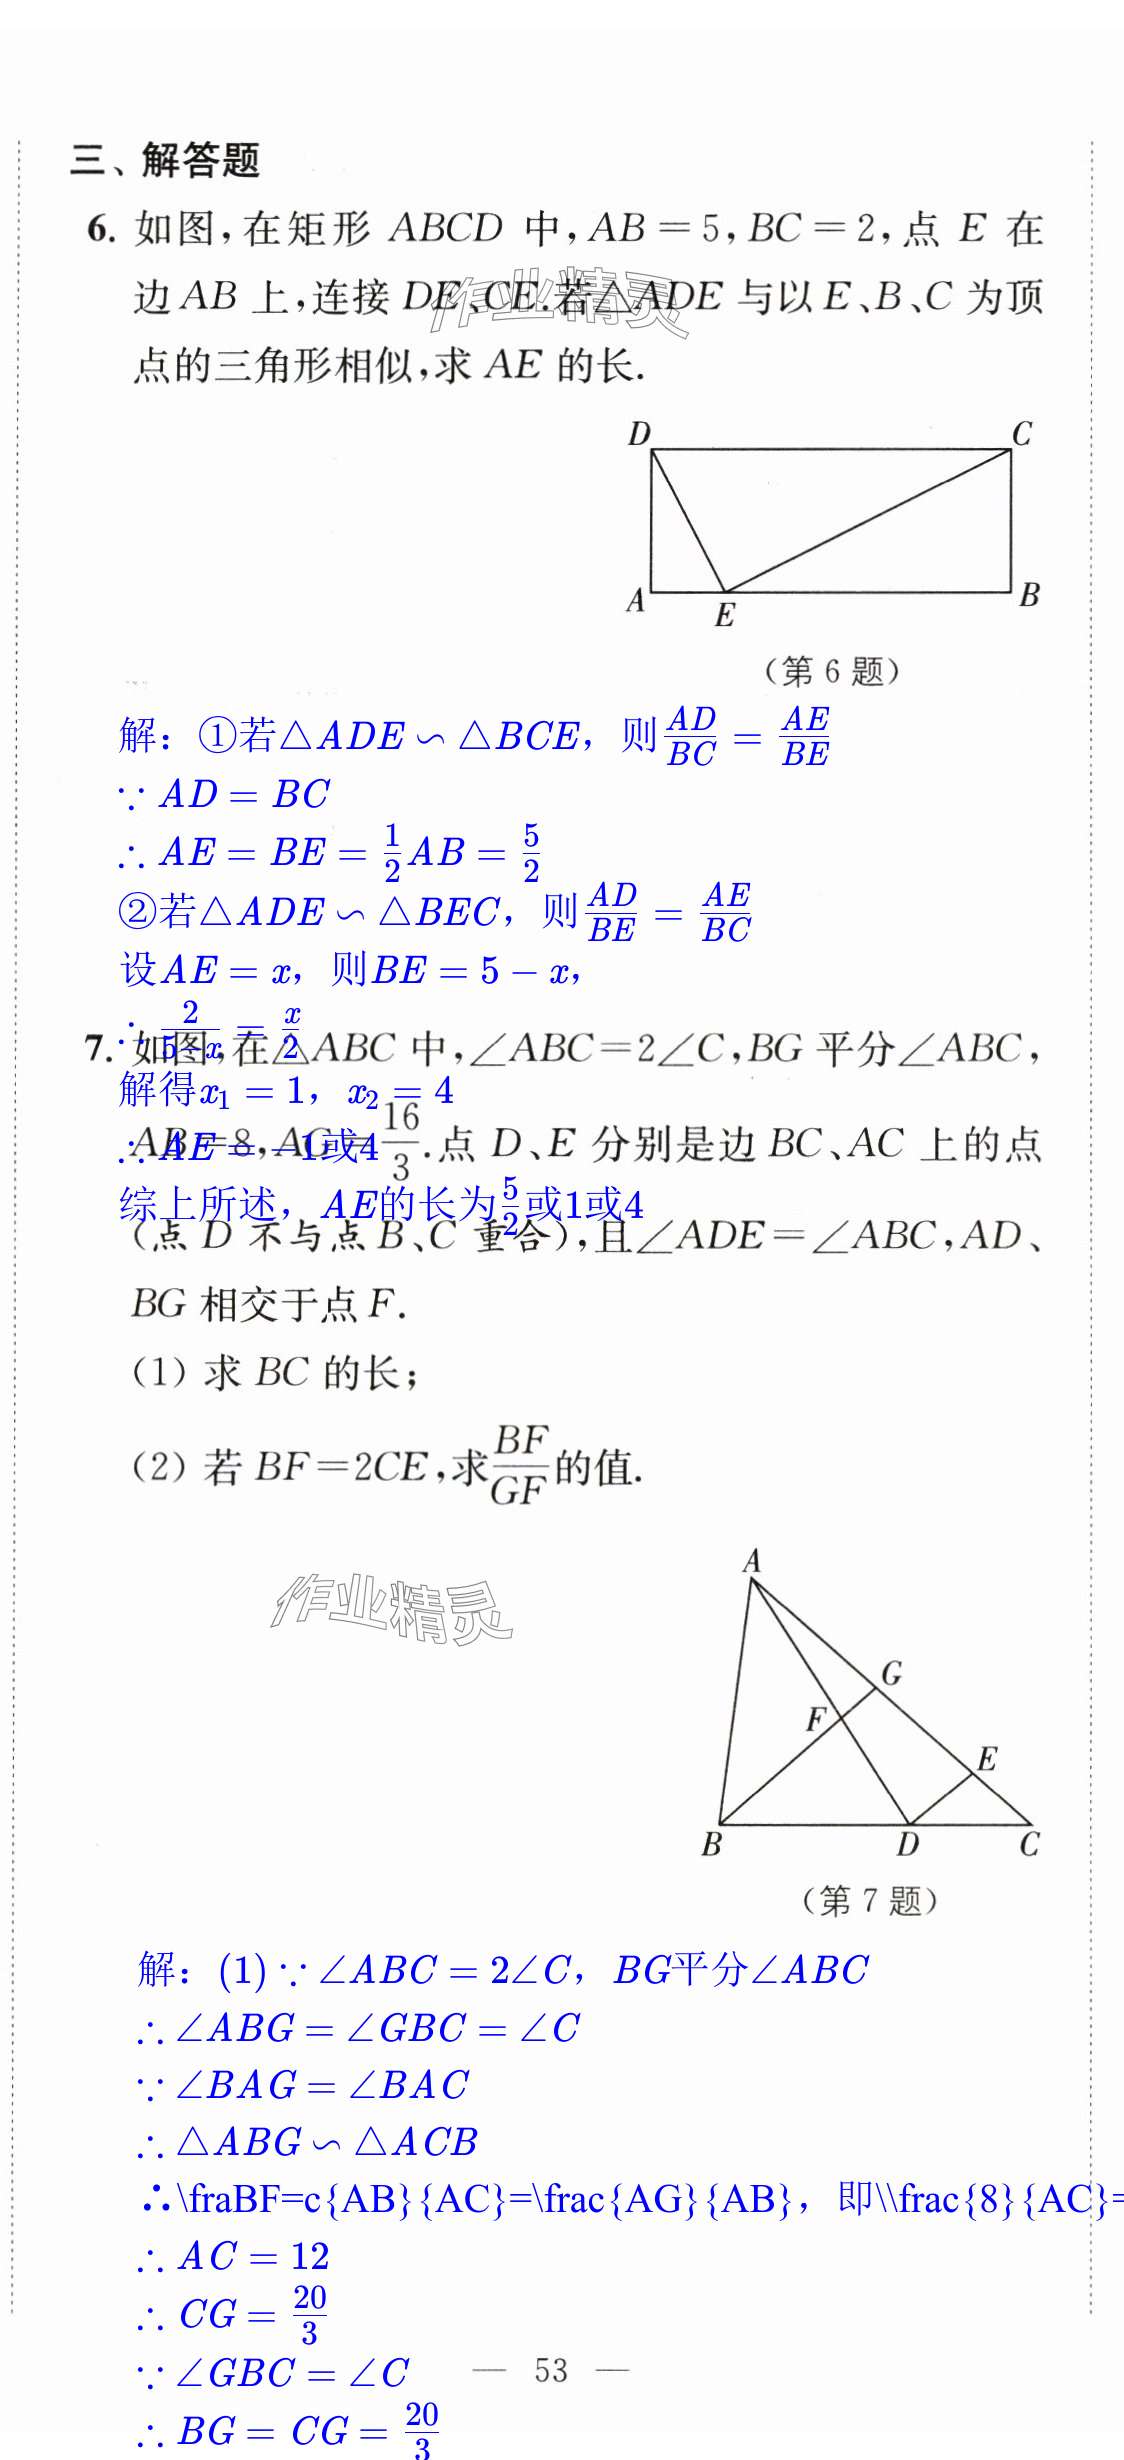 三、解答题
6. 如图,在矩形 ABCD 中,AB=5,BC=2,点 E 在
边 AB 上,连接 DE、CE.若△ADE 与以 E、B、C 为顶
点的三角形相似,求 AE 的长.
D
C
A
E
B
(第 6 题)
解：①若△ADE∽△BCE，则\frac{AD}{BC}=\frac{AE}{BE}
∵AD=BC
∴AE=BE=\frac{1}{2}AB=\frac{5}{2}
②若△ADE∽△BEC，则\frac{AD}{BE}=\frac{AE}{BC}
设AE=x，则BE=5-x，
∴\frac{2}{5-x}=\frac{x}{2}
7. 如图,在△ABC 中,∠ABC=2∠C,BG 平分∠ABC,
解得x₁=1，x₂=4
AB=8,AG=\frac{16}{3}.点 D、E 分别是边 BC、AC 上的点
∴AE=1或4
综上所述，AE的长为\frac{5}{2}或1或4
(点 D 不与点 B、C 重合),且∠ADE=∠ABC,AD、
BG 相交于点 F.
(1) 求 BC 的长;
(2) 若 BF=2CE,求\frac{BF}{GF}的值.
作业精灵
A
G
F
E
B
D
C
(第 7 题)
解：(1)∵∠ABC=2∠C，BG平分∠ABC
∴∠ABG=∠GBC=∠C
∵∠BAG=∠BAC
∴△ABG∽△ACB
∴\fraBF=c{AB}{AC}=\frac{AG}{AB}，即\\frac{8}{AC}=
∴AC=12
∴CG=\frac{20}{3}
∵∠GBC=∠C
— 53 —
∴BG=CG=\frac{20}{3}